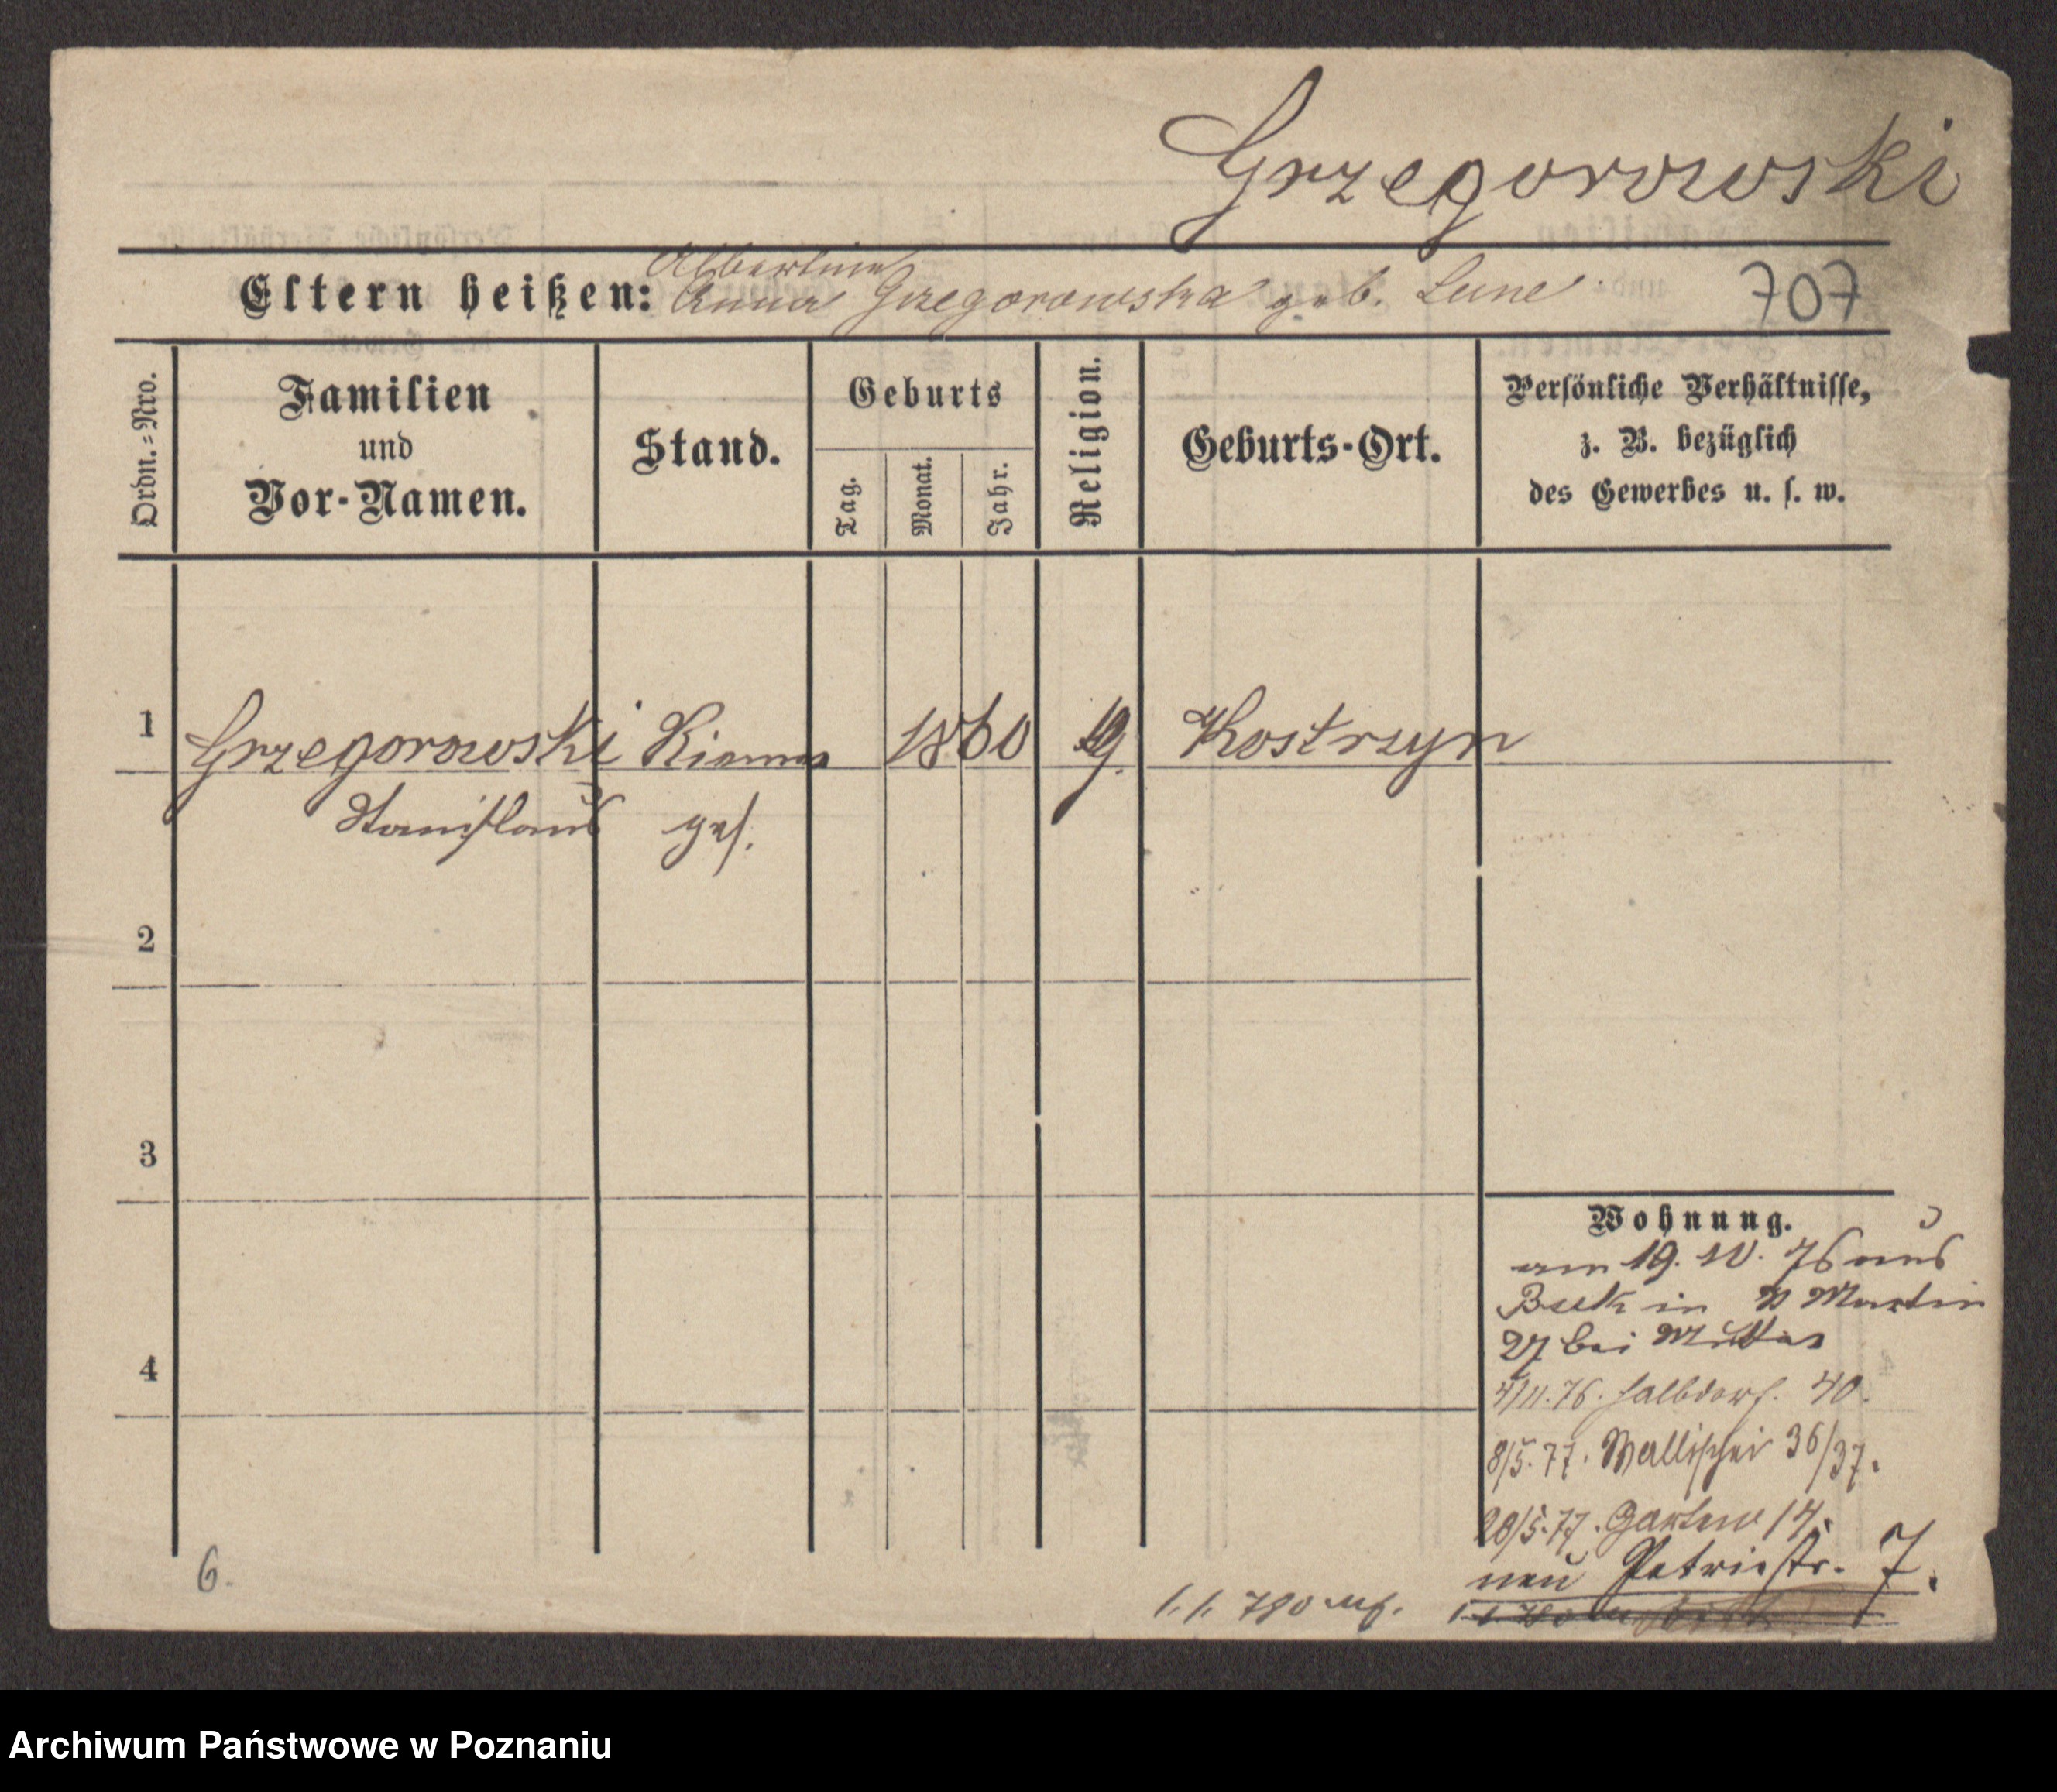 Grzegorowski
Albertine
Eltern heißen: Anna Grzegorowska geb. Lune
707
Ordn.-Nro.
Familien
und
Vor-Namen.
Stand.
Geburts
Tag.
Monat.
Jahr.
Religion.
Geburts-Ort.
Persönliche Verhältnisse,
z. B. bezüglich
des Gewerbes u. s. w.
1 Grzegorowski 1860 Kostrzyn
Stanislaus
2
3
4
Wohnung.
am 19. 10. 76 aus
Buk in St Martin
27 bei
4/11.76. Halbdorf. 40.
8/5.77. Wallischei 36/37.
28/5.77. Garten 14.
neu Petristr. 7.
6.
1. 1. 780
Archiwum Państwowe w Poznaniu